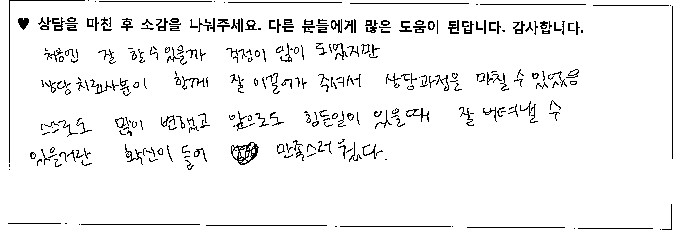 ♥ 상담을 마친 후 소감을 나눠주세요. 다른 분들에게 많은 도움이 된답니다. 감사합니다.
처음엔 잘 할 수 있을까 걱정이 많이 되었지만
상담치료사분이 함께 잘 이끌어가 주셔서 상담과정을 마칠 수 있었음
스스로도 많이 변했고 앞으로도 힘든일이 있을때 잘 버텨낼 수
있을거란 확신이 들어 만족스러웠다.